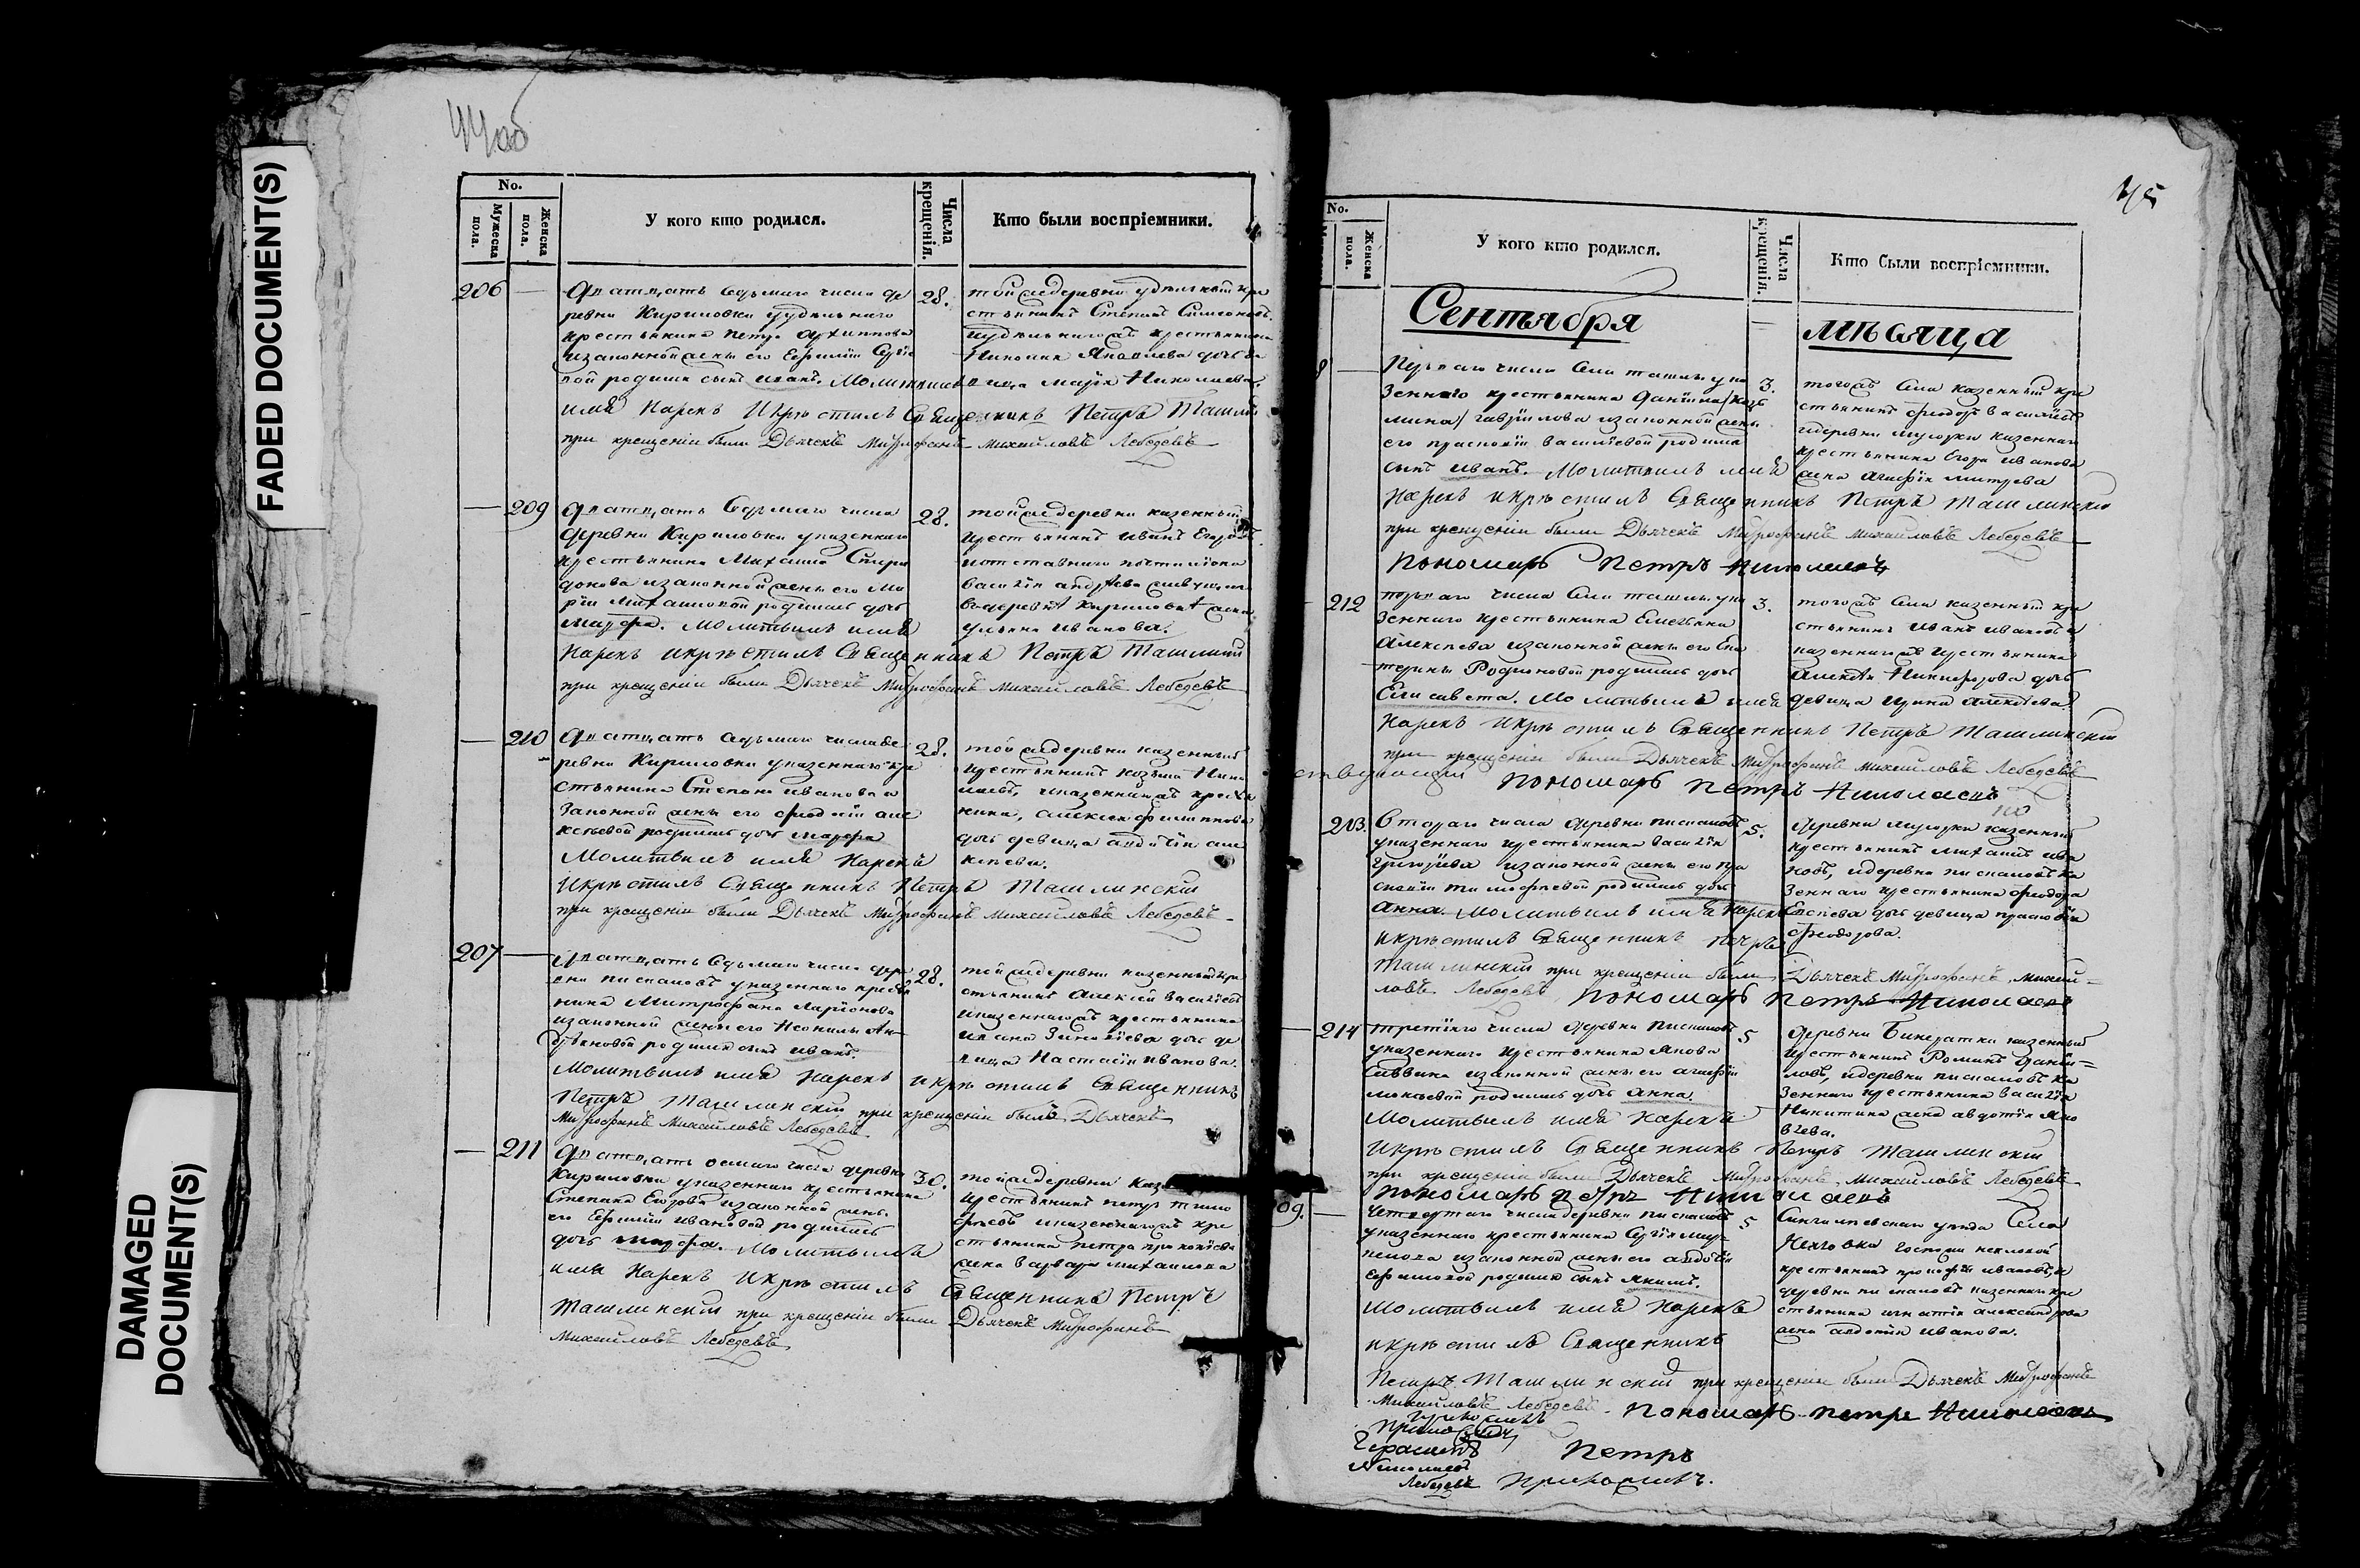 FADED DOCUMENT(S)
DAMAGED
DOCUMENT(S)
44об
No.
Мужеска пола.
Женска пола.
У кого кто родился.
Числа крещенія.
Кто были воспріемники.
206
Дватцать седьмаго числа де
ревни Кириловки удѣльнаго
крестьянина Петра Архиппова
изаконной жены его Евфиміи
вой родился сынъ Иванъ. Молитвилъ
имя Нарекъ Икрѣстилъ Священникъ Петръ
при крещеніи были Дьячекъ Митрофанъ Михайловъ Лебедевъ
28.
тойже деревни удѣльный кре
стьянинъ Степанъ Симеоновъ
иудѣльнагожъ крестьянина
Николая Яковлева дочь де
вица Марія Николаева.
209
Дватцать седьмаго числа
деревни Кириловки указеннаго
крестьянина Михаила Спири
донова изаконной жены его Ма
ріи Михаиловой родилась дочь
Марфа. Молитвилъ имя
Нарекъ икрѣстилъ Священникъ Петръ
при крещеніи были Дьячекъ Митрофанъ Михайловъ Лебедевъ
28.
тойже деревни казенный
крестьянинъ Иванъ Егоровъ
иотставнаго почталіона
Василія Андреева
вдеревнѣ Кириловкѣ жена
Ульяна Иванова.
210
Дватцать седьмаго числа де
ревни Кириловки указеннаго кре
стьянина Степана Иванова и
законной жены его Феодосіи Але
ксѣевой родилась дочь Марфа
Молитвилъ имя Нарекъ
Икрѣстилъ Священникъ Петръ Ташлинскій
при крещеніи были Дьячекъ Митрофанъ Михайловъ Лебедевъ
28.
тойже деревни казенный
крестьянинъ Козьма Нико
лаевъ, иказеннагожъ крестья
нина, Алексѣя Филиппова
дочь девица Авдотія Але
ксѣева.
207
Дватцать седьмаго числа дере
вни Пискаловъ указеннаго крестья
нина Митрофана Ларіонова
изаконной жены его Неонилы Ан
дреяновой родился сынъ Иванъ.
Молитвилъ имя Нарекъ икрѣстилъ Священникъ
Петръ Ташлинскій при крещеніи былъ Дьячекъ
Митрофанъ Михайловъ Лебедевъ
28.
тойже деревни казенный кре
стьянинъ Алексѣй Василіевъ
иказеннагожъ крестьянина
Ивана Зиновіева дочь де
вица Настасія Иванова.
211
Дватцать осмаго числа деревни
Кириловки указеннаго крестьянина
Степана Егорова изаконной жены
его Евфиміи Ивановой родилась
дочь Марфа. Молитвилъ
имя Нарекъ Икрѣстилъ Священникъ Петръ
Ташлинскій при крещеніи были Дьячекъ Митрофанъ
Михайловъ Лебедевъ
30.
тойже деревни
крестьянинъ Петръ Тимо
феевъ иказеннагожъ кре
стьянина Петра Прокопіева
жена Варвара Михаилова
45
No.
Женска пола.
У кого кто родился.
Числа крещенія.
Кто были воспріемники.
Сентября мѣсяца
8
Перваго числа села Ташлы ука
зеннаго крестьянина Даніила
Гавриилова изаконной жены
его Прасковіи Василіевой родился
сынъ Иванъ. Молитвилъ имя
Нарекъ икрѣстилъ Священникъ Петръ Ташлинскій
при крещеніи были Дьячекъ Митрофанъ Михайловъ Лебедевъ
Пономарь Петръ Николаевъ
3.
тогожъ села казенный кре
стьянинъ Феодоръ Василіевъ
идеревни казеннаго
крестьянина Егора Иванова
жена Агафія Митрева
212
перваго числа села Ташлы ука
зеннаго крестьянина Емельяна
Алексѣева изаконной жены его Ека
терины Родіоновой родилась дочь
Елисавета. Молитвилъ имя
Нарекъ Икрѣстилъ Священникъ Петръ Ташлинскій
при крещеніи были Дьячекъ Митрофанъ Михайловъ Лебедевъ
Пономарь Петръ Николаевъ
3.
тогожъ села казенный кре
стьянинъ Иванъ Ивановъ и
казеннагожъ крестьянина
Алексѣя Никифорова дочь
девица Ирина Алексѣева
213.
Втораго числа деревни Пискаловъ
указеннаго крестьянина Василія
Григоріева изаконной жены его Пра
сковіи Тимофеевой родилась дочь
Анна. Молитвилъ имя Нарекъ
икрѣстилъ Священникъ Петръ
Ташлинскій при крещеніи были Дьячекъ Митрофанъ Михай=
ловъ Лебедевъ Пономарь Петръ Николаевъ
5.
деревни казенный
крестьянинъ Михаилъ Ива
новъ, идеревни Пискаловъ ка
зеннаго крестьянина Феодора
Евсѣева дочь девица Прасковія
Феодорова.
214
третіяго числа деревни Пискаловъ
указеннаго крестьянина Якова
Саввина изаконной жены его Агафіи
родилась дочь Анна.
Молитвилъ имя Нарекъ
Икрѣстилъ Священникъ Петръ Ташлинскій
при крещеніи были Дьячекъ Митрофанъ Михайловъ Лебедевъ
Пономарь Петръ Николаевъ
5
деревни казенный
крестьянинъ Романъ Даніи=
ловъ, идеревни Пискаловъ ка
зеннаго крестьянина Василія
Никитина жена Авдотія Яко
влева.
09.
Четвертаго числа деревни Пискаловъ
указеннаго крестьянина Сергія
изаконной жены его Авдотіи
Ефимовой родился сынъ Якимъ.
Молитвилъ имя Нарекъ
икрѣстилъ Священникъ
Петръ Ташлинскій при крещеніи были Дьячекъ Митрофанъ
Михайловъ Лебедевъ Пономарь Петръ Николаевъ
5
уѣзда села
крестьянинъ Прокофій Ивановъ, и
деревни Пискаловъ казеннаго кре
стьянина Игнатія Александрова
жена Авдотія Иванова.
Герасимъ
Николаевъ
Лебедевъ
Петръ